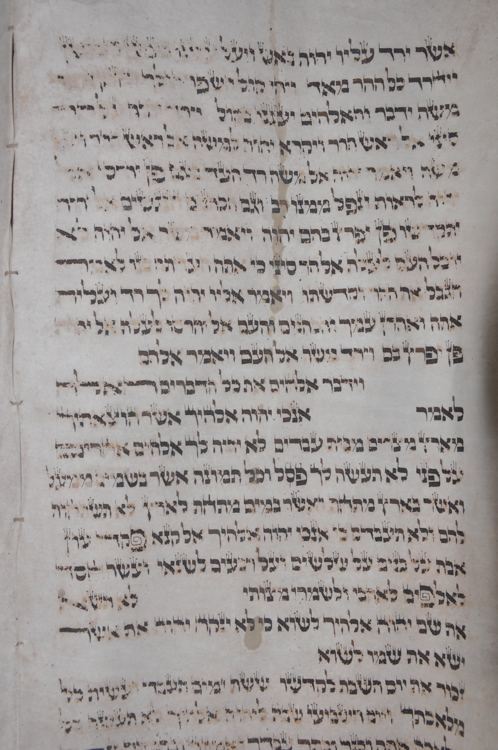 אשר ירד עליו יהוה באש ויעל
ויחרד כל ההר מאד ויהי קול השפר
משה ידבר והאלהים יעננו בקול וירד
סיני אל ראש ההר ויקרא יהוה למשה אל ראש ההר ויעל
משה ויאמר יהוה אל משה רד העד בעם פן יהרסו אל
יהוה לראות ונפל ממנו רב וגם הכהנים הנגשים אל יהוה
יתקדשו פן יפרץ בהם יהוה ויאמר משה אל יהוה לא
יוכל העם לעלת אל הר סיני כי אתה העדתה בנו לאמר
הגבל את ההר וקדשתו ויאמר אליו יהוה לך רד ועלית
אתה ואהרן עמך והכהנים והעם אל יהרסו לעלת אל יהוה
פן יפרץ בם וירד משה אל העם ויאמר אלהם
וידבר אלהים את כל הדברים האלה
לאמר אנכי יהוה אלהיך אשר הוצאתיך
מארץ מצרים מבית עבדים לא יהיה לך אלהים אחרים
על פני לא תעשה לך פסל וכל תמונה אשר בשמים ממעל
ואשר בארץ מתחת ואשר במים מתחת לארץ לא תשתחוה
להם ולא תעבדם כי אנכי יהוה אלהיך אל קנא פקד עון
אבת על בנים על שלשים ועל רבעים לשנאי ועשה חסד
לאלפים לאהבי ולשמרי מצותי לא תשא
את שם יהוה אלהיך לשוא כי לא ינקה יהוה את אשר
ישא את שמו לשוא
זכור את יום השבת לקדשו ששת ימים תעבד ועשית כל
מלאכתך ויום השביעי שבת ליהוה אלהיך לא תעשה